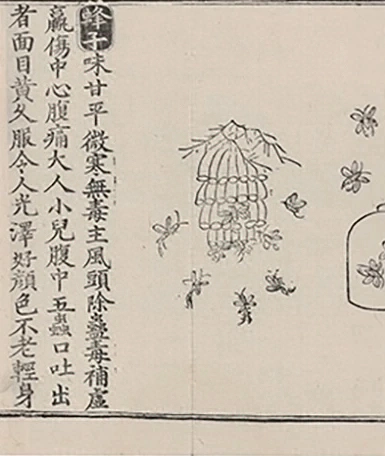 蜂子味甘平微寒無毒主風頭除蠱毒補虛
羸傷中心腹痛大人小兒腹中五蟲口吐出
者面目黃久服令人光澤好顏色不老輕身